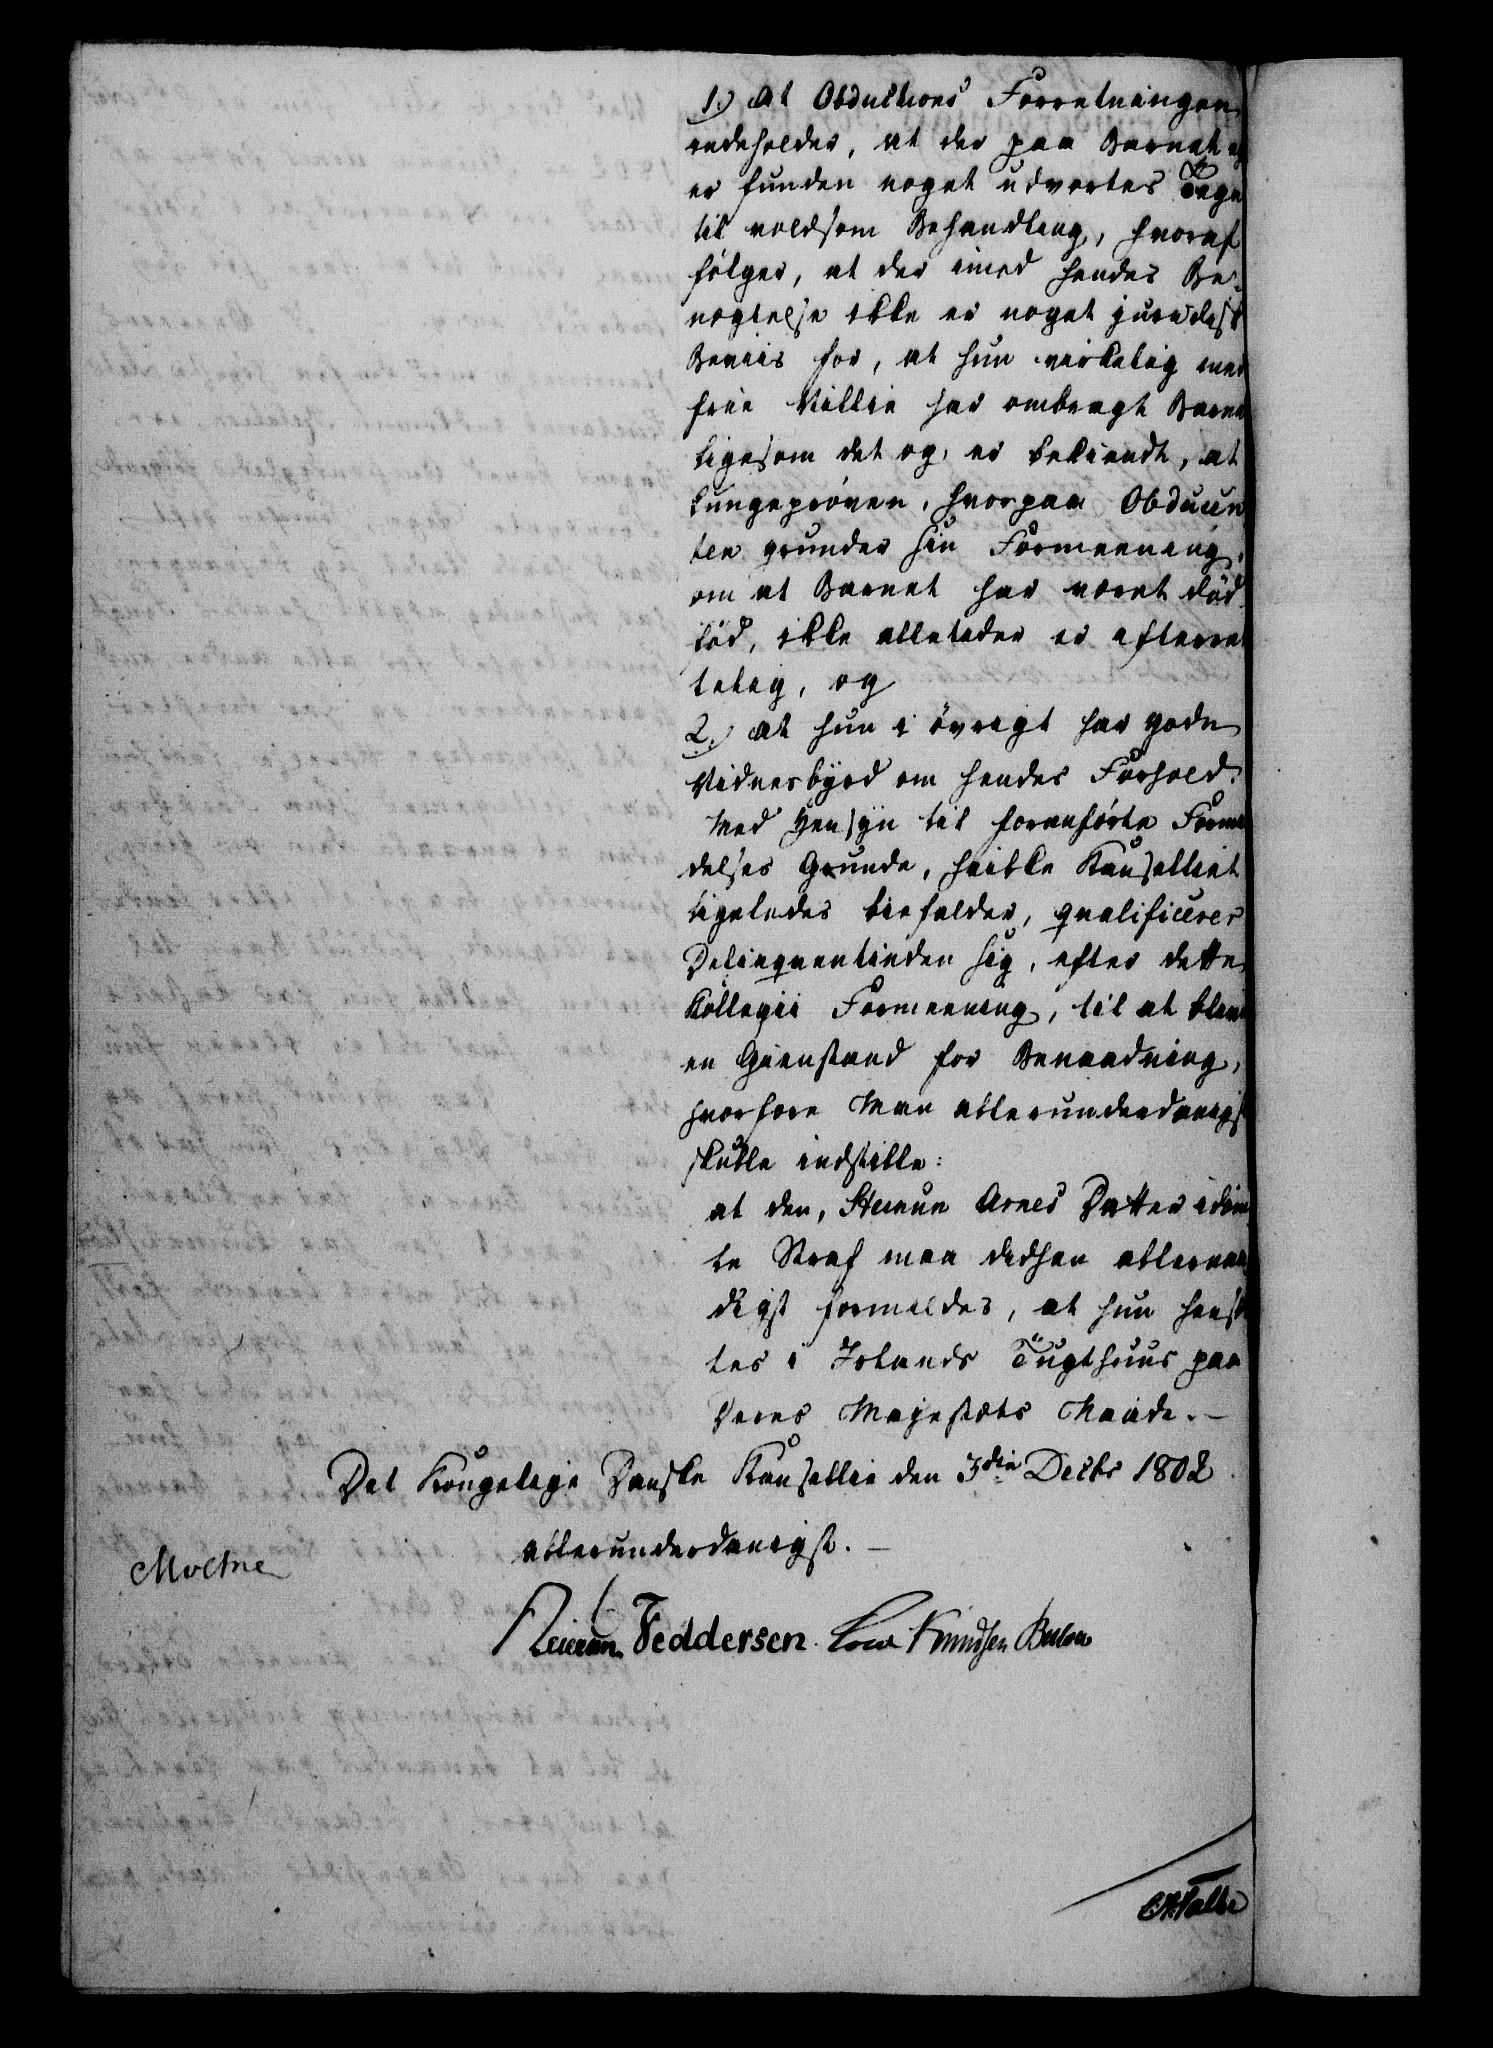 1.) At Obductions Forretningen
indeholder, at der paa Barnet ej
er funden noget udvortes Tegn
til voldsom Behandling, hvoraf
følger, at der imod hendes Be-
nægtelse ikke er noget juridisk
Beviis for, at hun virkelig med
frie Villie har ombragt Barnet
ligesom det og er bekiendt, at
Lungeprøven, hvorpaa Obducen
ten grunder sin Formeening,
om at Barnet har været død
fød, ikke alletider er efterret
telig, og
2.) At hun i øvrigt har gode
Vidnesbyrd om hendes Forhold.
Med Hensyn til foranførte Formil
delses Grunde, hvilke Kanselliet
ligeledes biefalder, qualificerer
Delinqventinden sig, efter dette
Collegii Formeening, til at blive
en Gienstand for Benaadning,
hvorfore Man allerunderdanigst
skulle indstille:
at den, Steinun Arnes Datter idøm
te Straf maa derhen allernaa
digst formildes, at hun hensæt
tes i Islands Tugthuus paa
Deres Majestæts Naade. -
Det Kongelige Danske Kansellie den 3die Decbr 1802
allerunderdanigst. -
Moltke
Feddersen. Knudsen Bülow